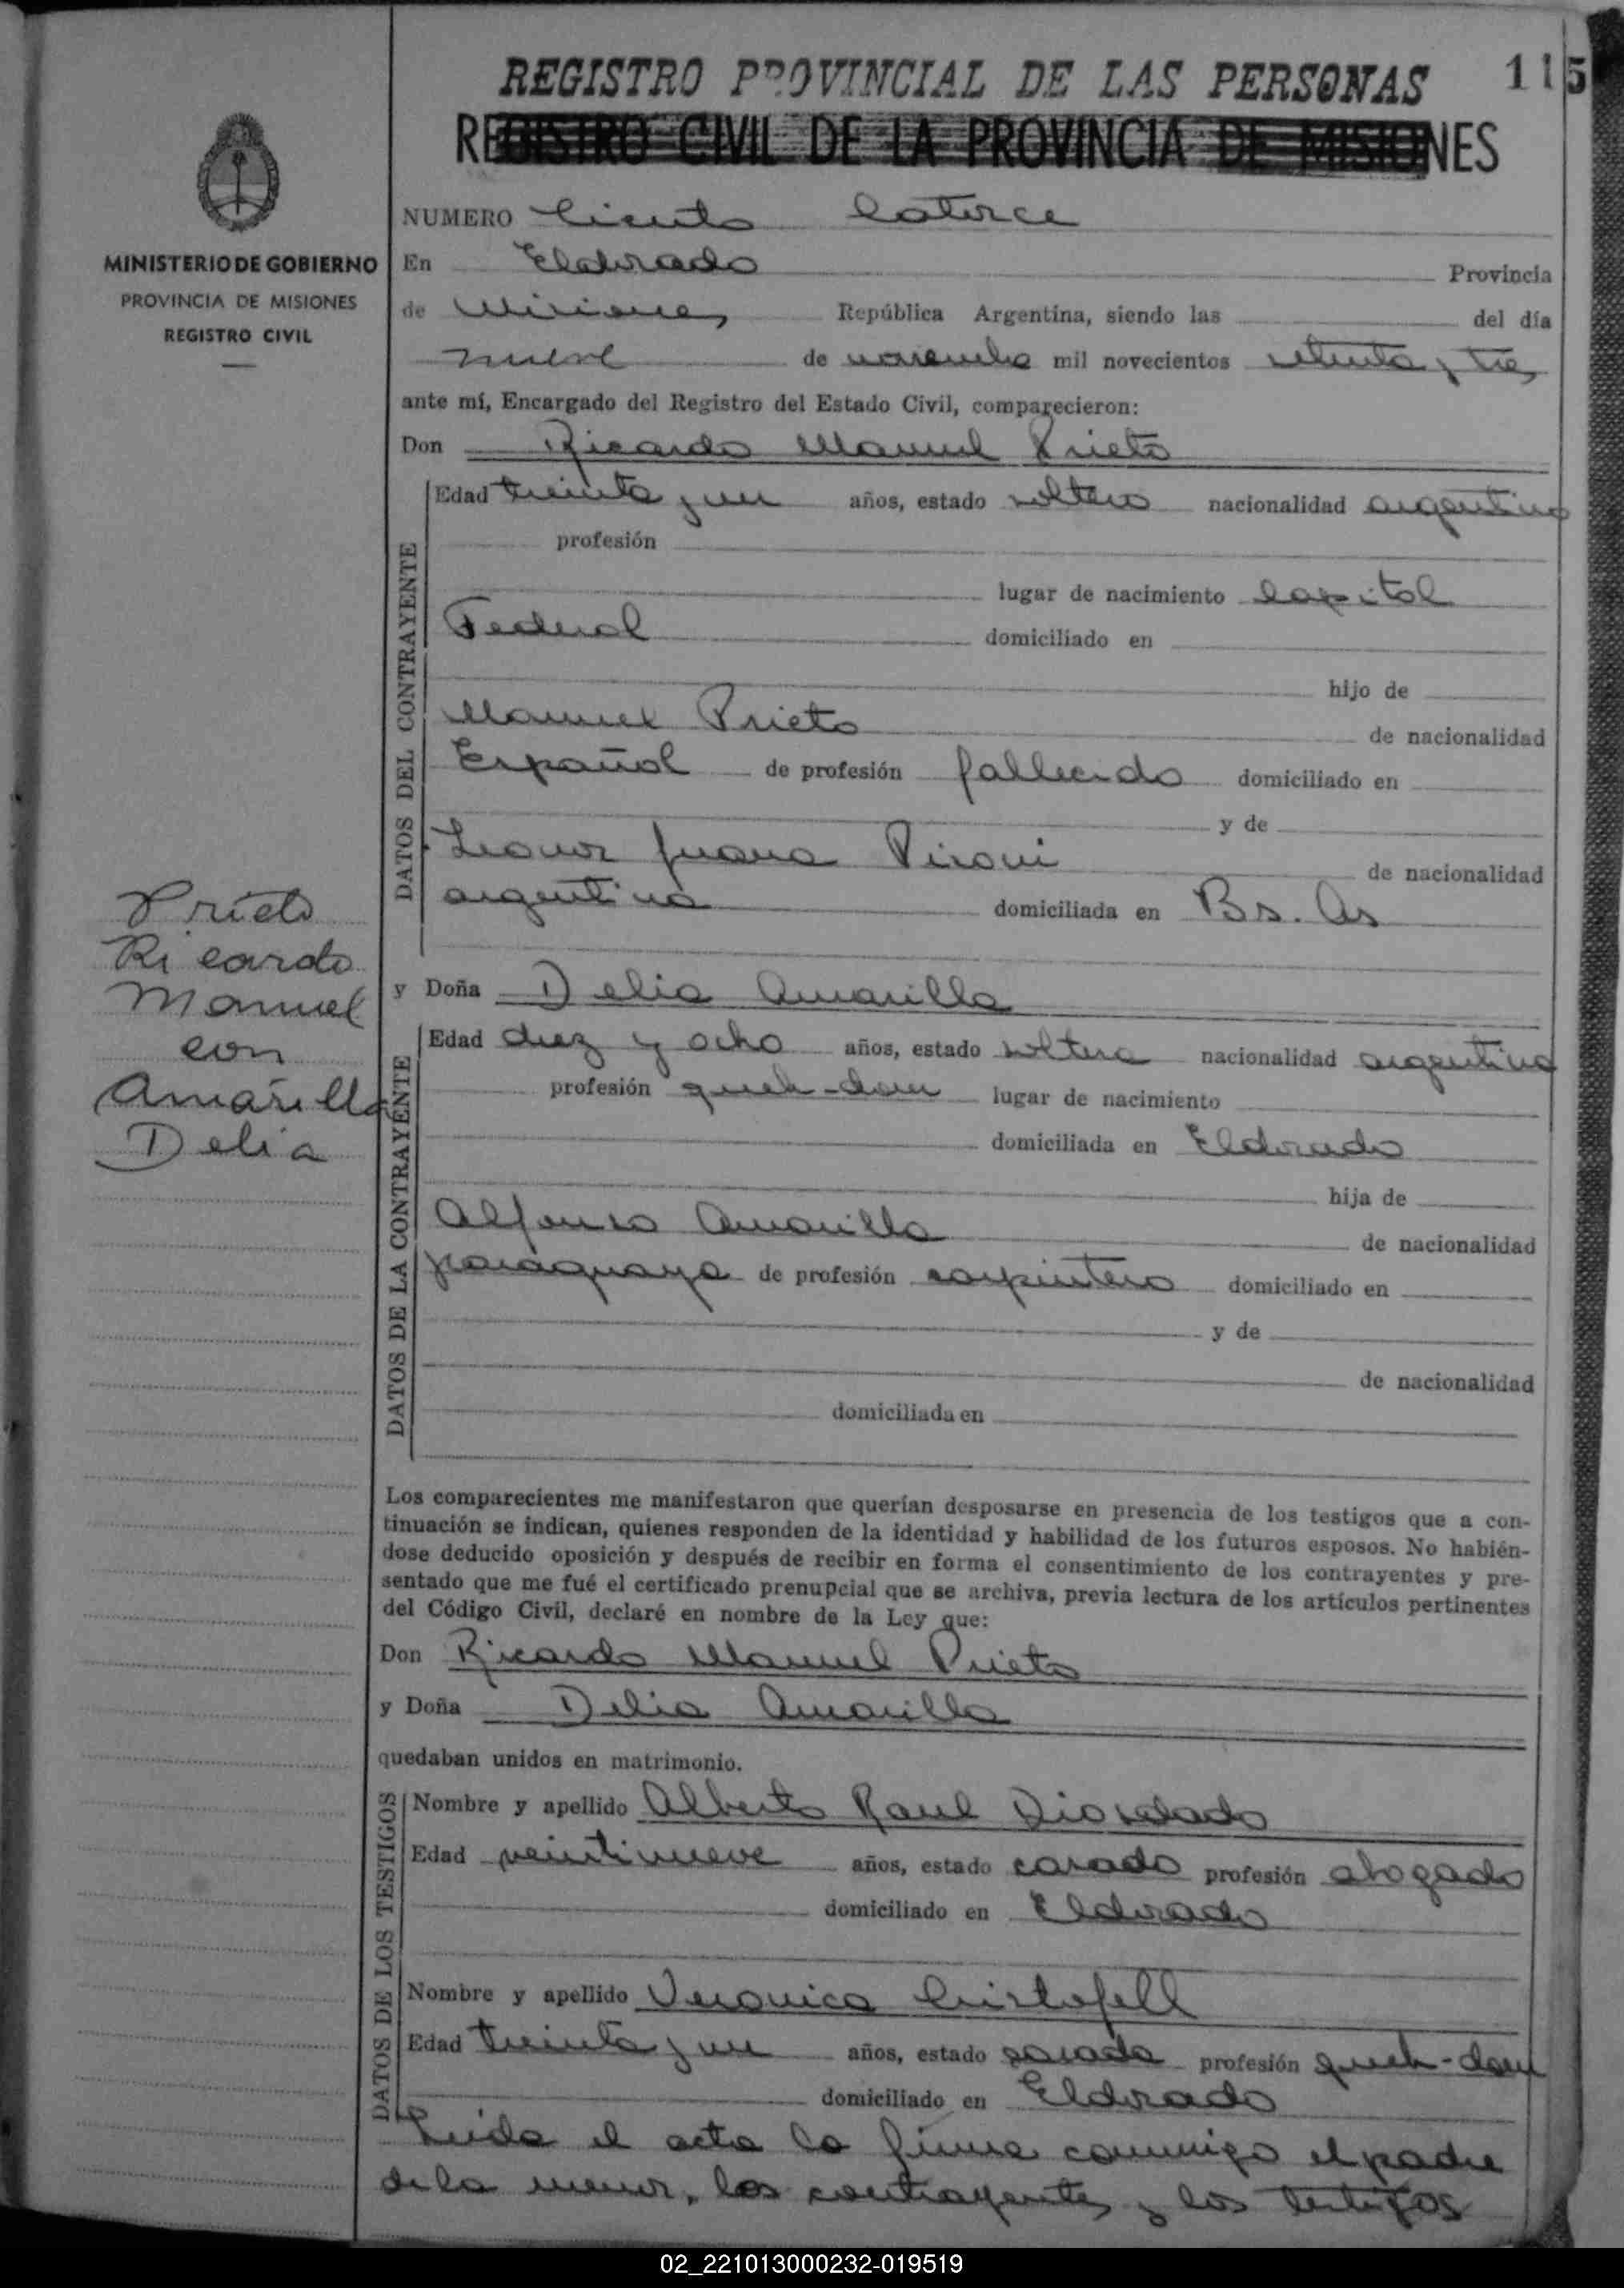 REGISTRO PROVINCIAL DE LAS PERSONAS 115
REGISTRO CIVIL DE LA PROVINCIA DE MISIONES
MINISTERIO DE GOBIERNO
PROVINCIA DE MISIONES
REGISTRO CIVIL
NUMERO Ciento Catorce
En Eldorado Provincia
de Misiones República Argentina, siendo las del día
nueve de noviembre mil novecientos setenta y tres
ante mí, Encargado del Registro del Estado Civil, comparecieron:
Don Ricardo Manuel Prieto
DATOS DEL CONTRAYENTE
Edad treinta y un años, estado soltero nacionalidad argentino
profesión
lugar de nacimiento Capital
Federal domiciliado en
hijo de
Manuel Prieto de nacionalidad
Español de profesión fallecido domiciliado en
y de
Leonor Juana Pironi de nacionalidad
argentina domiciliada en Bs. As
Prieto
Ricardo
Manuel
con
Amarilla
Delia
y Doña Delia Amarilla
DATOS DE LA CONTRAYENTE
Edad diez y ocho años, estado soltera nacionalidad argentina
profesión queh-dom lugar de nacimiento
domiciliada en Eldorado
hija de
Alfonso Amarilla de nacionalidad
paraguaya de profesión carpintero domiciliado en
y de
de nacionalidad
domiciliada en
Los comparecientes me manifestaron que querían desposarse en presencia de los testigos que a con-
tinuación se indican, quienes responden de la identidad y habilidad de los futuros esposos. No habién-
dose deducido oposición y después de recibir en forma el consentimiento de los contrayentes y pre-
sentado que me fué el certificado prenupcial que se archiva, previa lectura de los artículos pertinentes
del Código Civil, declaré en nombre de la Ley que:
Don Ricardo Manuel Prieto
y Doña Delia Amarilla
quedaban unidos en matrimonio.
DATOS DE LOS TESTIGOS
Nombre y apellido Alberto Raul Diosdado
Edad veintinueve años, estado casado profesión abogado
domiciliado en Eldorado
Nombre y apellido Veronica Cristofell
Edad treinta y un años, estado casada profesión queh-dom
domiciliado en Eldorado
Leida el acta la firma conmigo el padre
de la menor, los contrayentes y los testigos
02_221013000232-019519